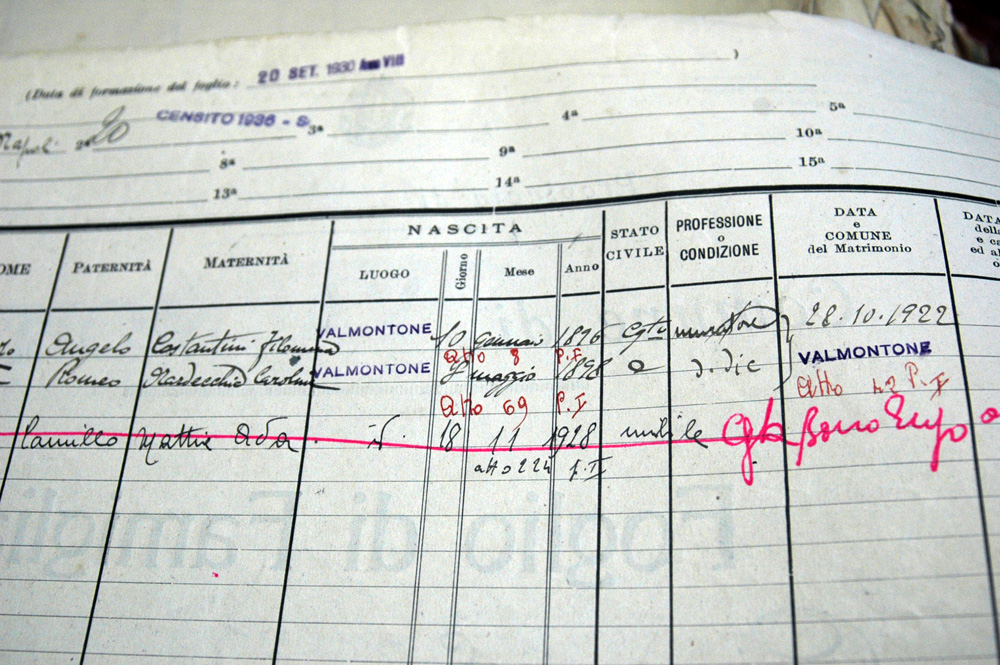 (Data di formazione del foglio: 20 SET. 1930 Anno VIII )
Napoli 20 CENSITO 1936 - S 3ª 4ª 5ª
8ª 9ª 10ª
13ª 14ª 15ª
OME PATERNITÀ MATERNITÀ NASCITA STATO CIVILE PROFESSIONE o CONDIZIONE DATA e COMUNE del Matrimonio DATA
LUOGO Giorno Mese Anno
Angelo Costantini Filomena VALMONTONE 10 gennaio 1896 Cgto muratore 28.10.1922
Atto 8 P.I
Romeo Mardecchia Carolina VALMONTONE 8 maggio 1898 a d. dic VALMONTONE
Atto 69 P.I atto 42 P.I
Camillo Mattia Ada id. 18 11 1928 nubile
atto 224 p.I
Foglio di Famiglia